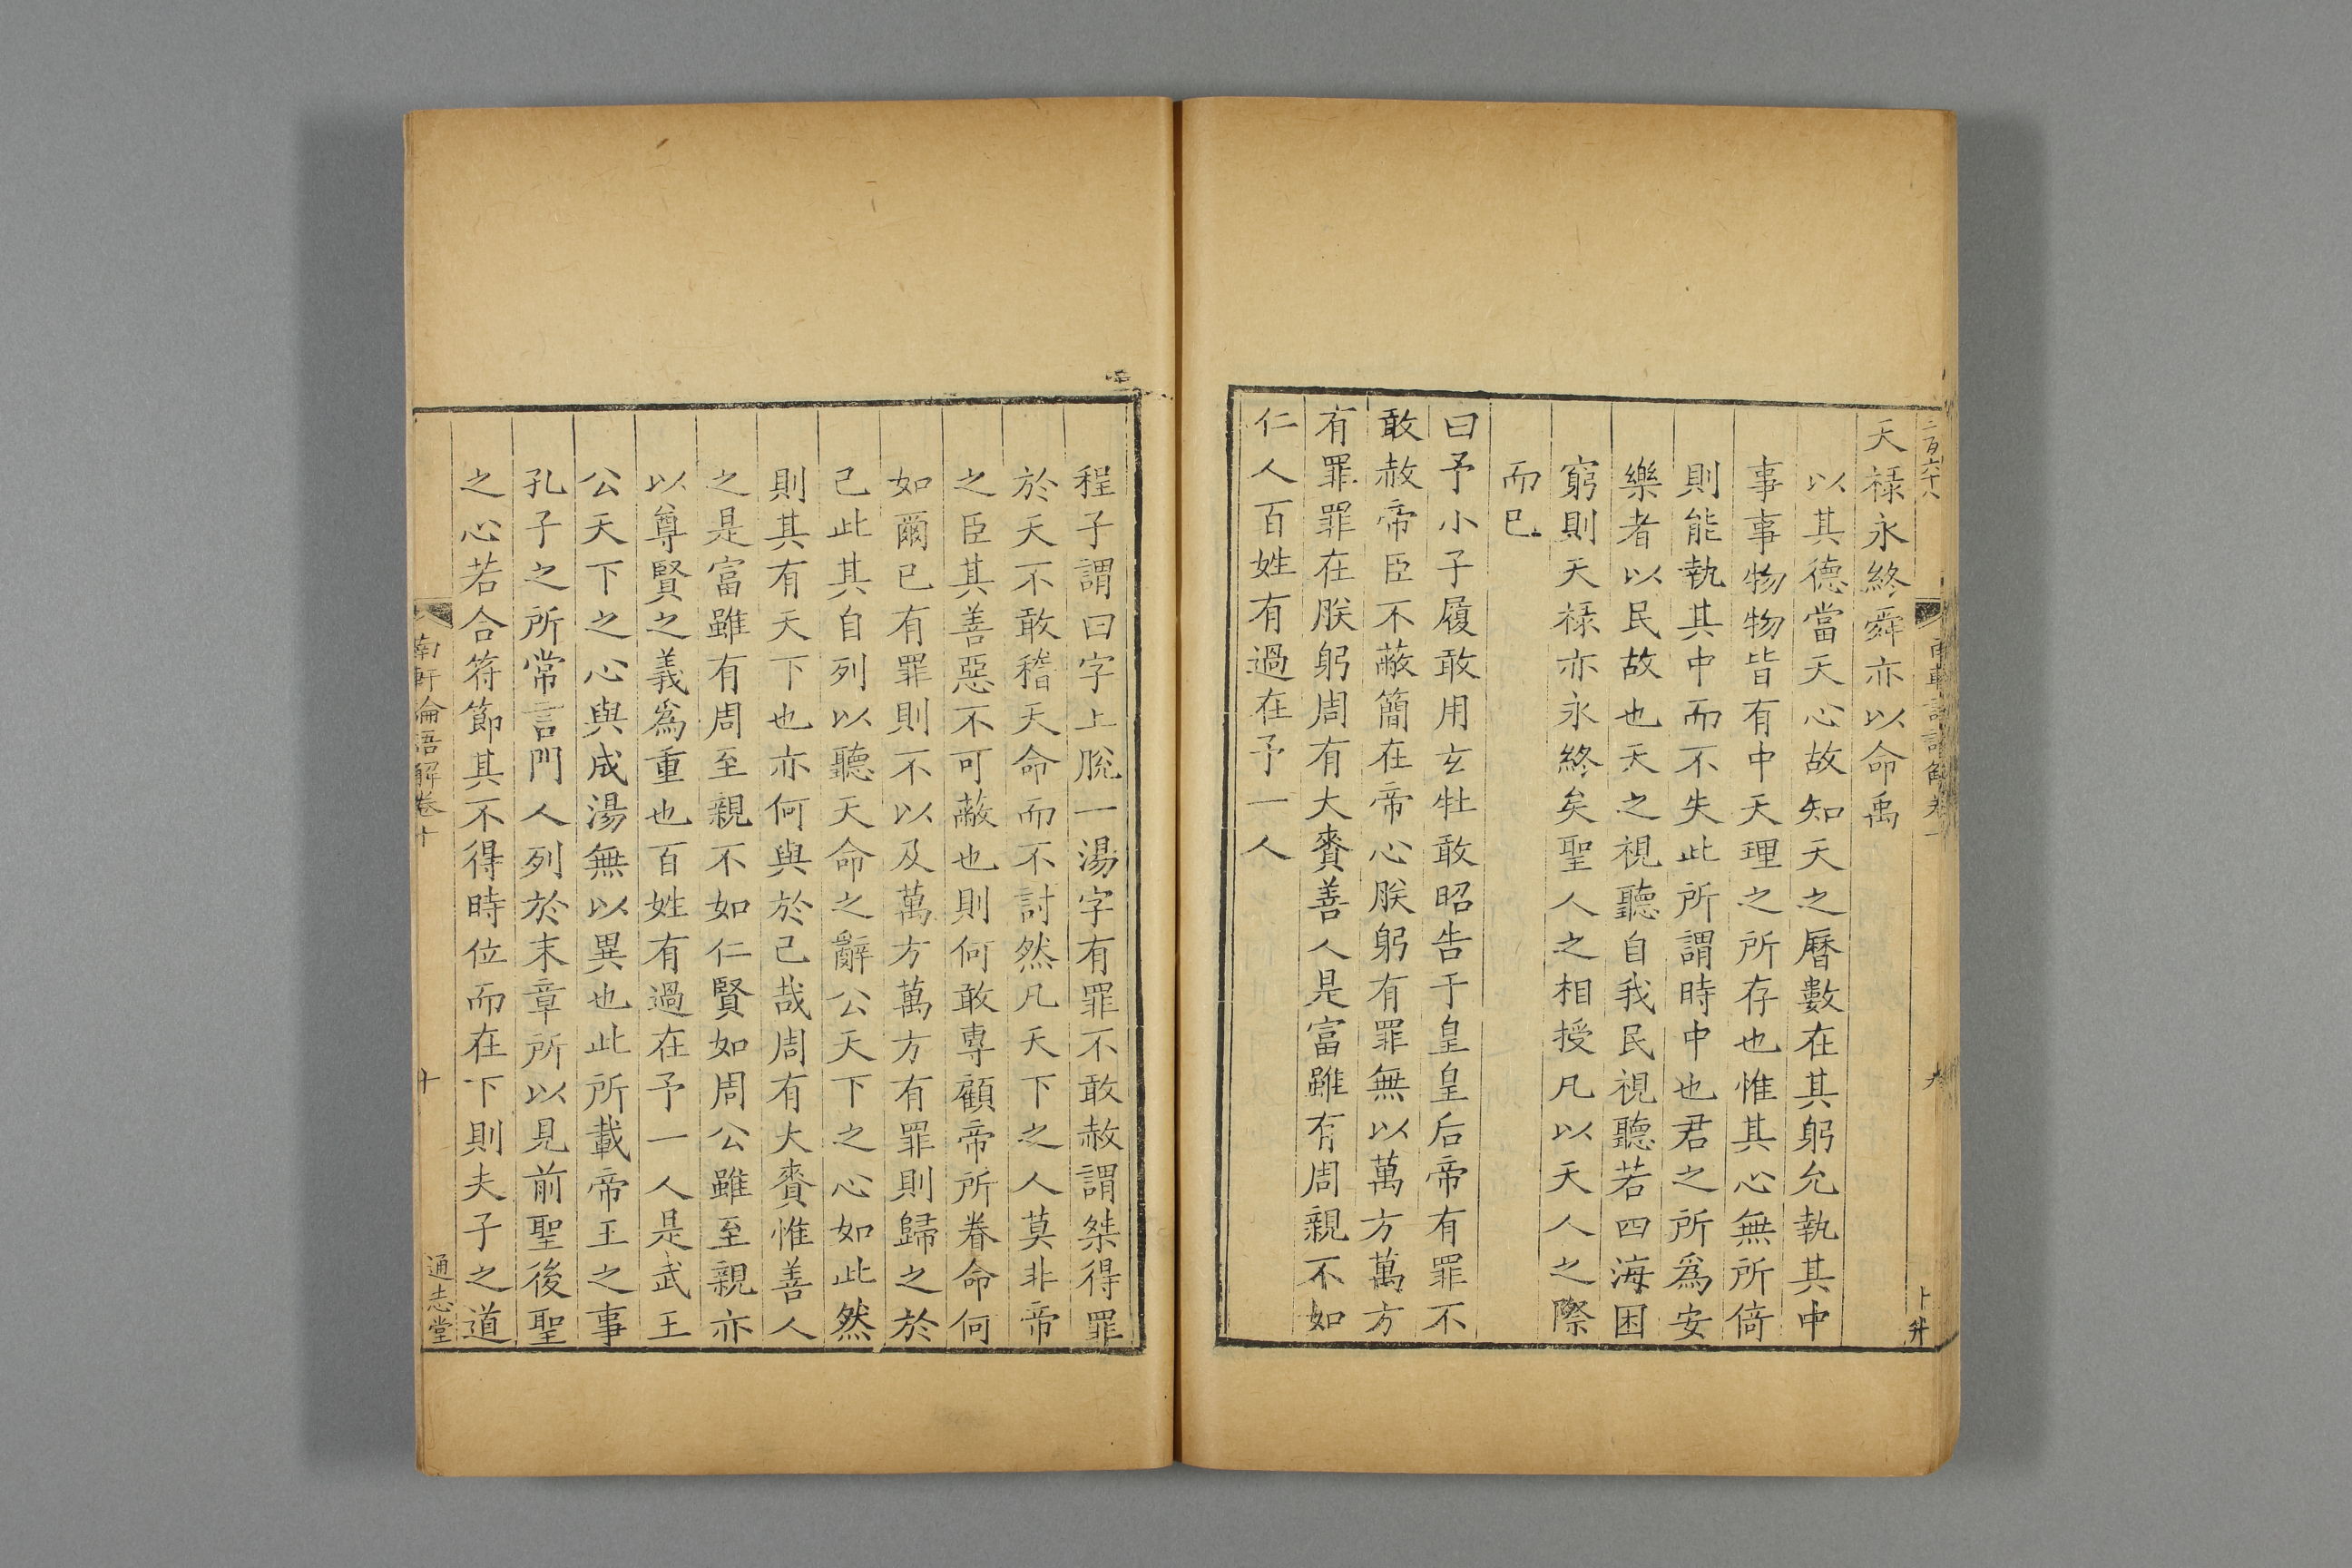 二百六十八
天祿永終舜亦以命禹
以其德當天心故知天之曆數在其躬允執其中
事事物物皆有中天理之所存也惟其心無所倚
則能執其中而不失此所謂時中也君之所爲安
樂者以民故也天之視聽自我民視聽若四海困
窮則天祿亦永終矣聖人之相授凡以天人之際
而已
曰予小子履敢用玄牡敢昭告于皇皇后帝有罪不
敢赦帝臣不蔽簡在帝心朕躬有罪無以萬方萬方
有罪罪在朕躬周有大賚善人是富雖有周親不如
仁人百姓有過在予一人
程子謂曰字上脫一湯字有罪不敢赦謂桀得罪
於天不敢稽天命而不討然凡天下之人莫非帝
之臣其善惡不可蔽也則何敢專顧帝所眷命何
如爾已有罪則不以及萬方萬方有罪則歸之於
己此其自列以聽天命之辭公天下之心如此然
則其有天下也亦何與於己哉周有大賚惟善人
之是富雖有周至親不如仁賢如周公雖至親亦
以尊賢之義爲重也百姓有過在予一人是武王
公天下之心與成湯無以異也此所載帝王之事
孔子之所常言門人列於末章所以見前聖後聖
之心若合符節其不得時位而在下則夫子之道
南軒論語解卷十
十
通志堂